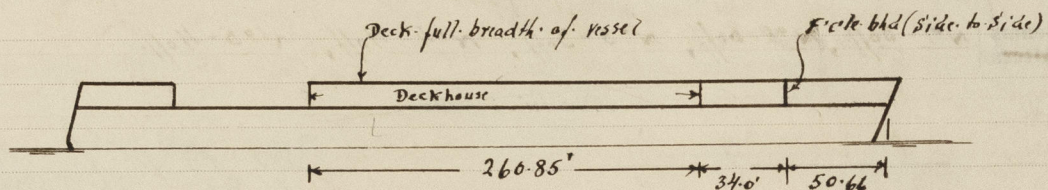 Deck full breadth of vessel
F'cle bhd (Side to Side)
Deckhouse
260.85'
34.0'
50.66